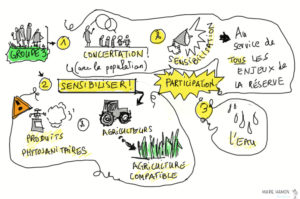 GROUPE 3
1
CONCERTATION !
(avec la population)
SENSIBILISATION
Au
service de
TOUS LES
ENJEUX de
LA RÉSERVE
2
SENSIBILISER !
PARTICIPATION
3
L'EAU
AGRICULTEURS
PRODUITS
PHYTOSANITAIRES
AGRICULTURE
COMPATIBLE